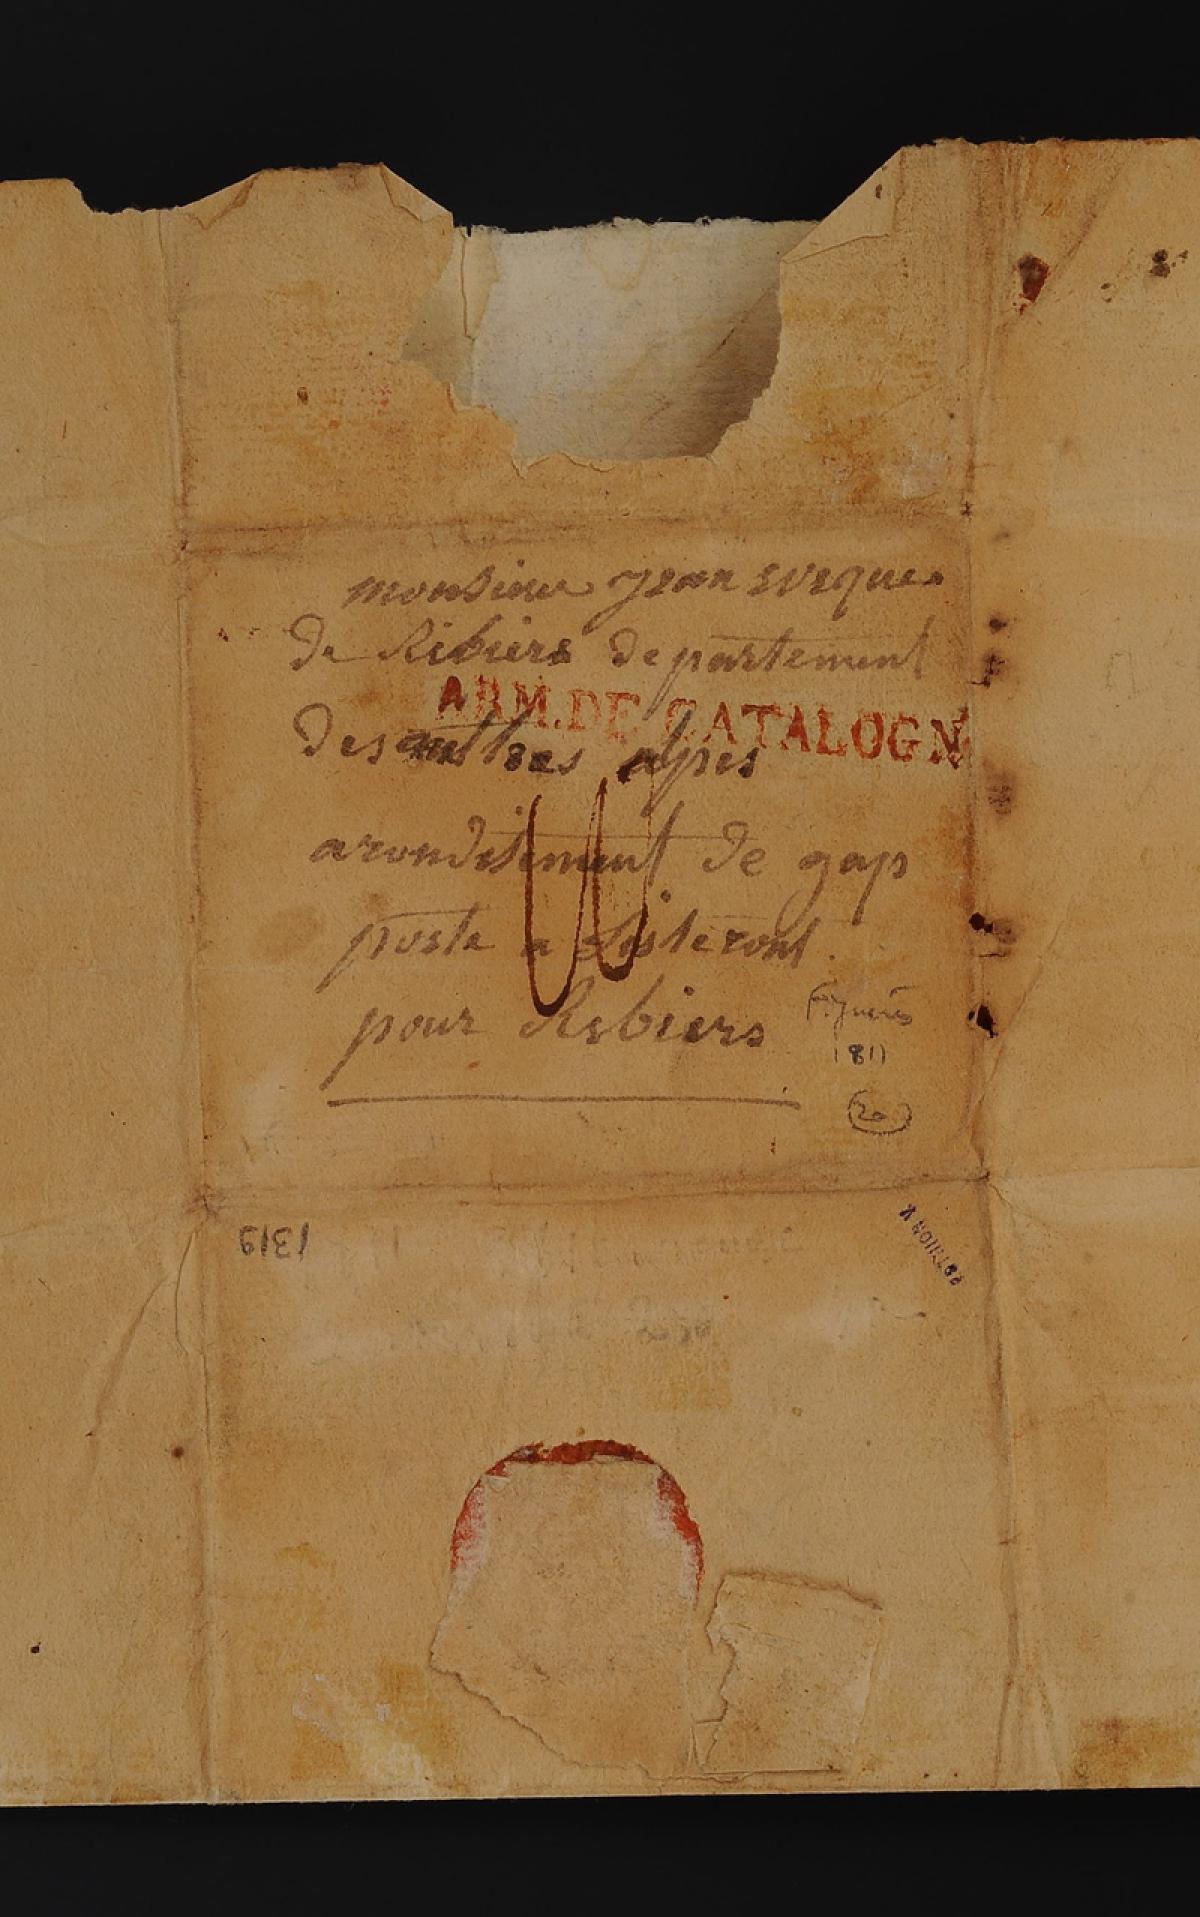 monsieur Jean Eveque
de Ribiers departement
ARM. DE CATALOGN
des autbes alpes
arondisement de gap
poste a sisteront
pour Rebiers
Figuères
1811
20
1319
POTHION